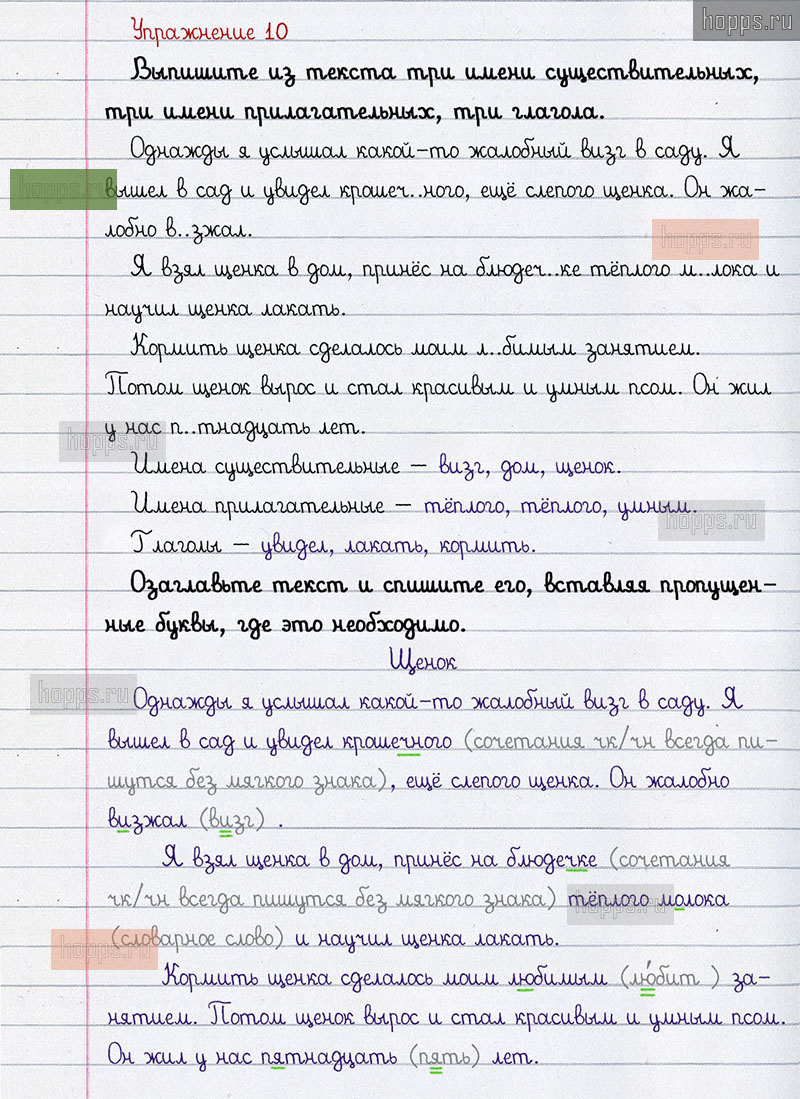 hopps.ru
Упражнение 10
Выпишите из текста три имени существительных,
три имени прилагательных, три глагола.
Однажды я услышал какой-то жалобный визг в саду. Я
hopps.ru
вышел в сад и увидел крошеч..ного, ещё слепого щенка. Он жа-
лобно в..зжал.
hopps.ru
Я взял щенка в дом, принёс на блюдеч..ке тёплого м..лока и
научил щенка лакать.
Кормить щенка сделалось моим л..бимым занятием.
Потом щенок вырос и стал красивым и умным псом. Он жил
у нас п..тнадцать лет.
hopps.ru
Имена существительные – визг, дом, щенок.
Имена прилагательные – тёплого, тёплого, умным.
hopps.ru
Глаголы – увидел, лакать, кормить.
Озаглавьте текст и спишите его, вставляя пропущен-
ные буквы, где это необходимо.
Щенок
hopps.ru
Однажды я услышал какой-то жалобный визг в саду. Я
вышел в сад и увидел крошечного (сочетания чк/чн всегда пи-
шутся без мягкого знака), ещё слепого щенка. Он жалобно
визжал (визг) .
Я взял щенка в дом, принёс на блюдечке (сочетания
чк/чн всегда пишутся без мягкого знака) тёплого молока
hopps.ru
(словарное слово) и научил щенка лакать.
hopps.ru
Кормить щенка сделалось моим любимым (лю́бит ) за-
нятием. Потом щенок вырос и стал красивым и умным псом.
Он жил у нас пятнадцать (пять) лет.